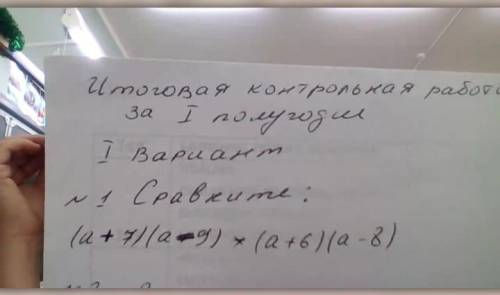 Итоговая контрольная работа
за I полугодие
I Вариант
№1 Сравните:
(a+7)(a-9) * (a+6)(a-8)